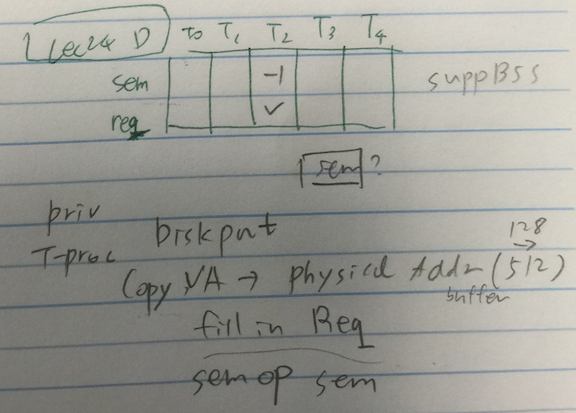 Lec24 D
T0 T1 T2 T3 T4
sem -1
req ✓
suppBss
sem ?
priv
T-proc Diskput
128 →
Copy VA → physical Addr (512)
buffer
fill in Req
semop sem